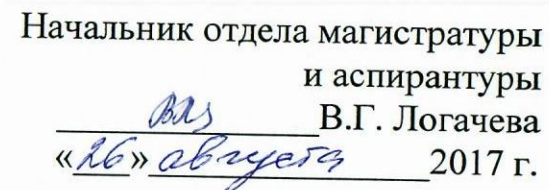 Начальник отдела магистратуры
и аспирантуры
В.Г. Логачева
«26» августа 2017 г.